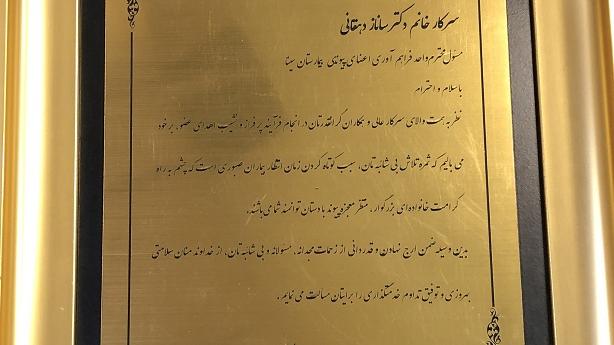 سرکار خانم دکتر ساناز دهقانی
مسئول محترم واحد فراهم آوری اعضای پیوندی بیمارستان سینا
با سلام و احترام
نظر به همت والای سرکار عالی و همکاران گرانقدرتان در انجام فرآیند پر فراز و نشیب اهدای عضو، بر خود
می بالیم که ثمره تلاش بی شائبه تان، سبب کوتاه کردن زمان انتظار بیماران صبوری است که چشم به راه
کرامت خانواده ای بزرگوار، منتظر معجزه پیوند با دستان توانمند شما می باشند.
بدین وسیله ضمن ارج نهادن و قدردانی از زحمات مجدانه، مسئولانه و بی شائبه تان، از خداوند منان سلامتی
بهروزی و توفیق تداوم خدمتگذاری را برایتان مسالت می نمایم.